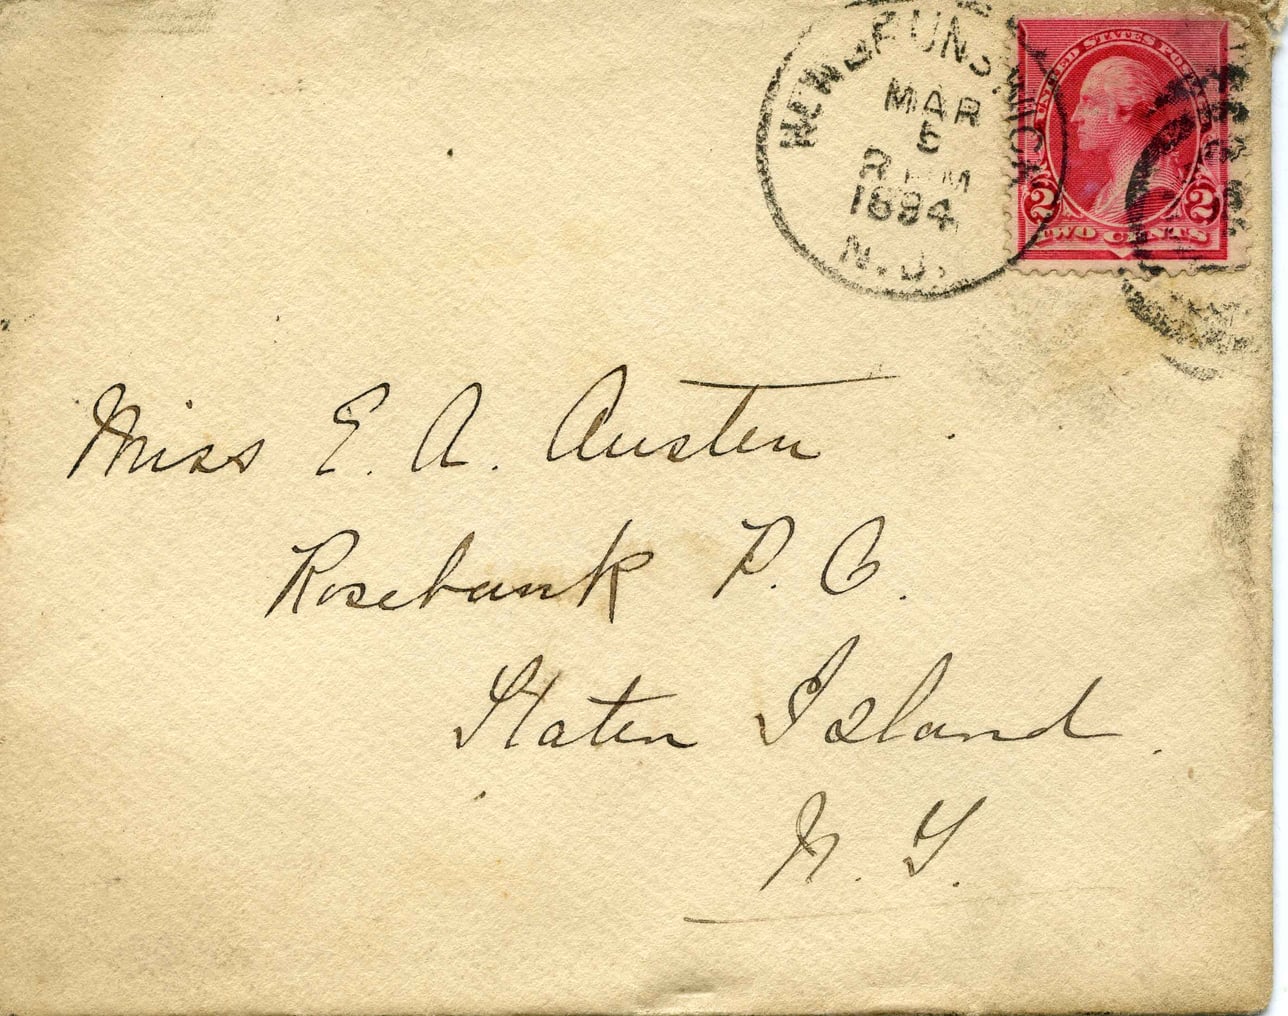 NEW BRUNSWICK
MAR
5
1894
N.J.
UNITED STATES POS
2 2
TWO CENTS
Miss E. A. Austen
Rosebank P. O.
Staten Island.
N. Y.